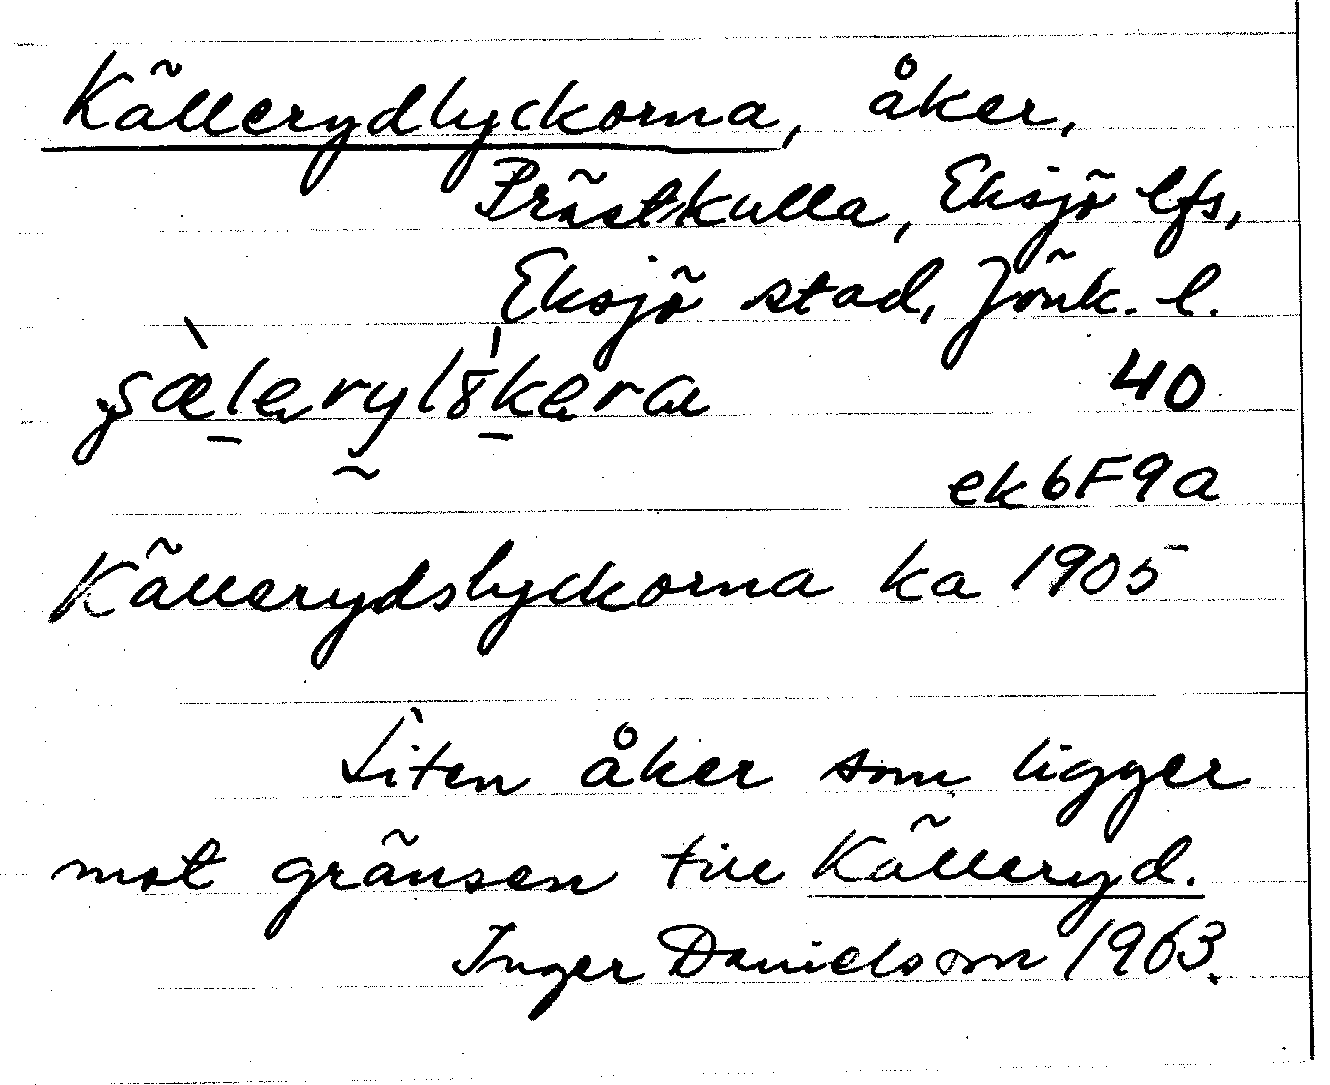 Källerydlyckorna, åker,
Prästkulla, Eksjö lfs,
Eksjö stad, Jönk. l.
40
ek6F9a
Källerydslyckorna ka 1905
Liten åker som ligger
mot gränsen till Källeryd.
Inger Danielsson 1963.